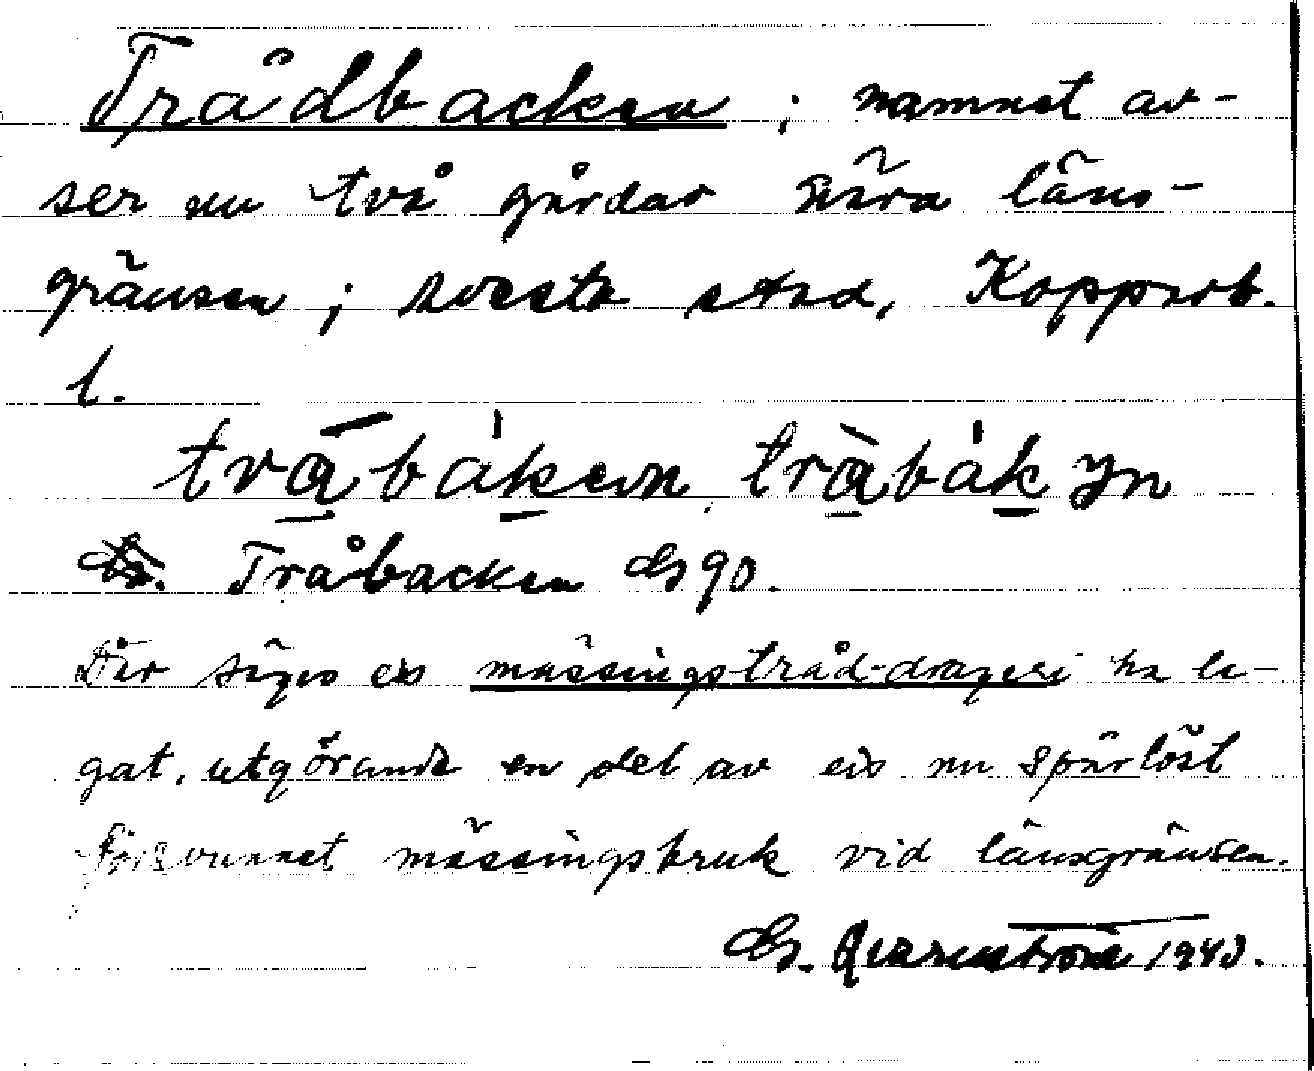 Trådbacken ; namnet av-
ser nu två gårdar nära läns-
gränsen ; Avesta stad, Kopparb.
l.
tvābákenn, tràbákyn
Tråbacken 90.
Där säges en mässingstråd-drageri ha le-
gat, utgörande en del av en nu spårlöst
försvunnet mässingsbruk vid länsgränsen.
1943.